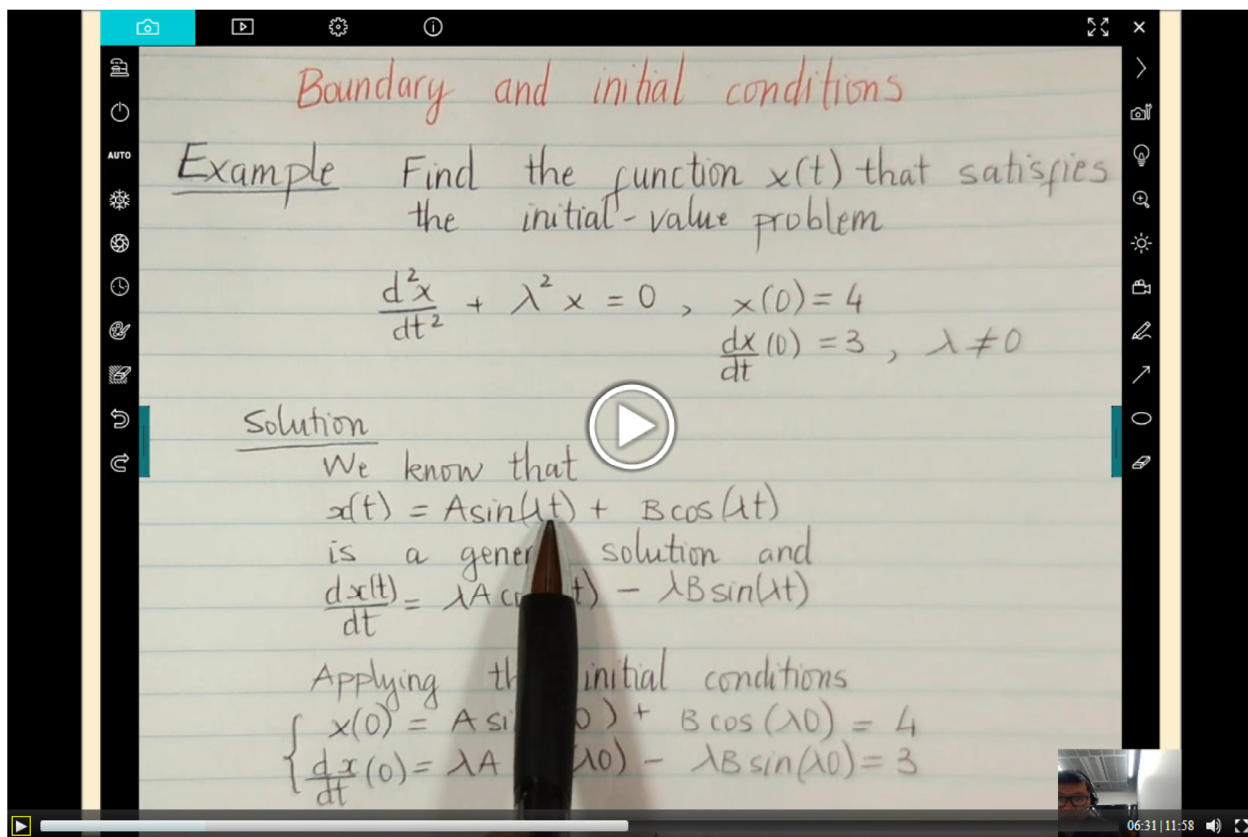 AUTO
Boundary and initial conditions
Example Find the function x(t) that satisfies
the initial-value problem
d²x/dt² + λ² x = 0 , x(0) = 4
dx/dt (0) = 3 , λ ≠ 0
Solution
We know that
x(t) = A sin(λt) + B cos(λt)
is a solution and
dx(t)/dt = λA − λB sin(λt)
Applying initial conditions
x(0) = A + B cos (λ0) = 4
dx/dt (0) = λA (λ0) − λB sin(λ0) = 3
06:31 | 11:58